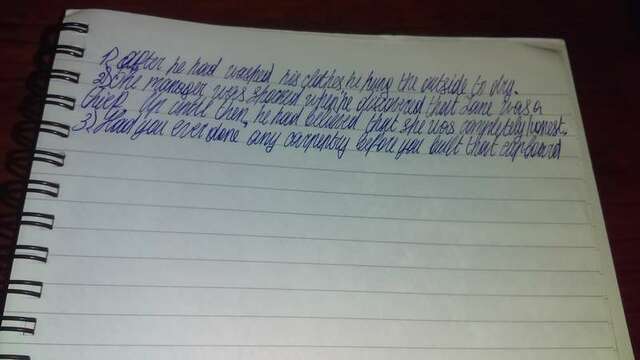 1) After he had washed his clothes, he hung the outside to dry.
2) The manager was shocked when he discovered that Jane was a
thief. Up until then, he had believed that she was completely honest.
3) Had you ever done any carpentry before you built that cupboard